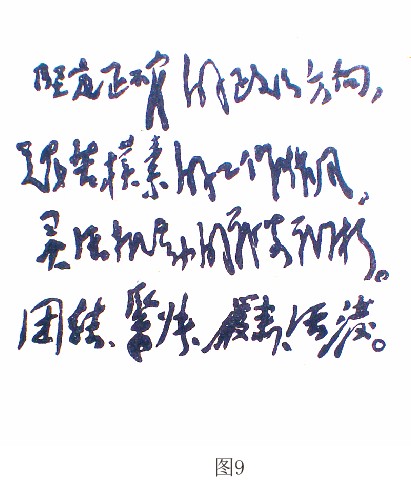 坚定正确的政治方向，
艰苦樸素的工作作风，
灵活机动的战略战术。
团结、緊张、嚴肃、活潑。
图9